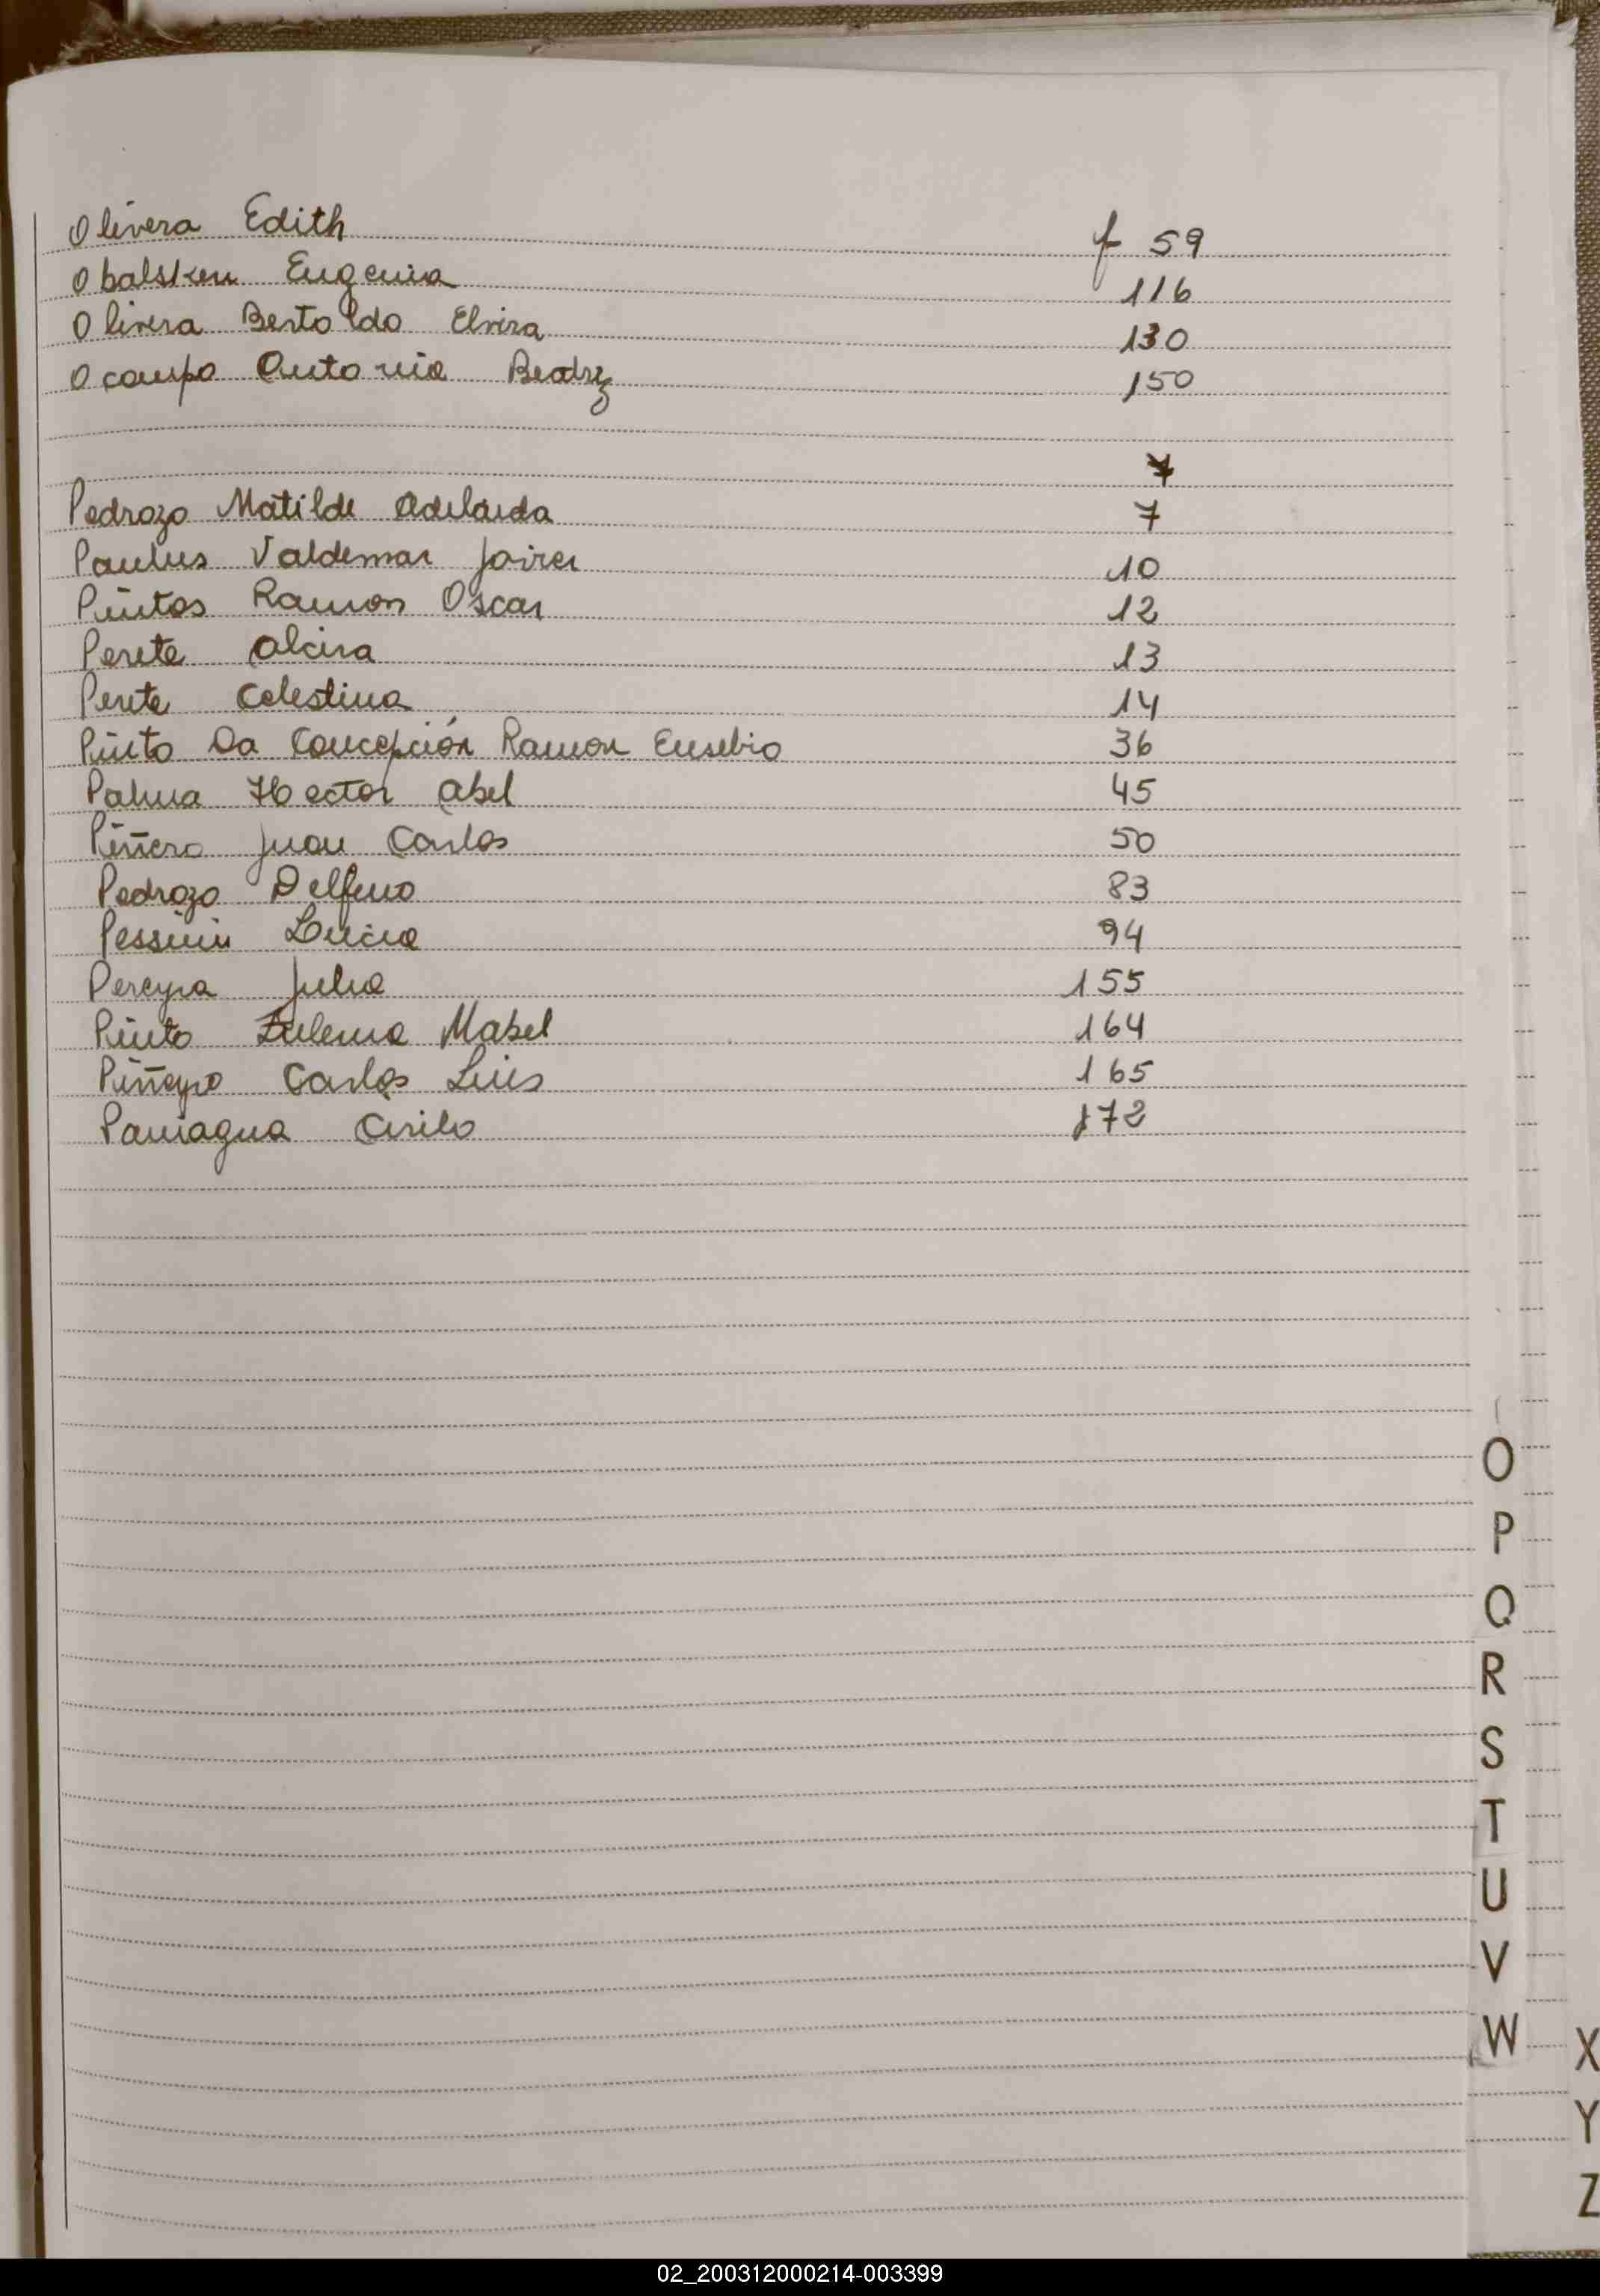 Olivera Edith f 59
Obalsken Eugenia 116
Olivera Bertoldo Elvira 130
Ocampo Antonia Beatriz 150
7
Pedrozo Matilde Adelaida 7
Paulus Valdemar Javier 10
Pintos Ramon Oscar 12
Perete Alcira 13
Perete Celestina 14
Pinto Da Concepción Ramon Eusebio 36
Palma Hector Abel 45
Piñero Juan Carlos 50
Pedrozo Delfino 83
Pessini Lucia 94
Pereyra Julia 155
Pinto Zulema Mabel 164
Piñeyro Carlos Luis 165
Paniagua Cirilo 172
O
P
Q
R
S
T
U
V
W
X
Y
Z
02_200312000214-003399